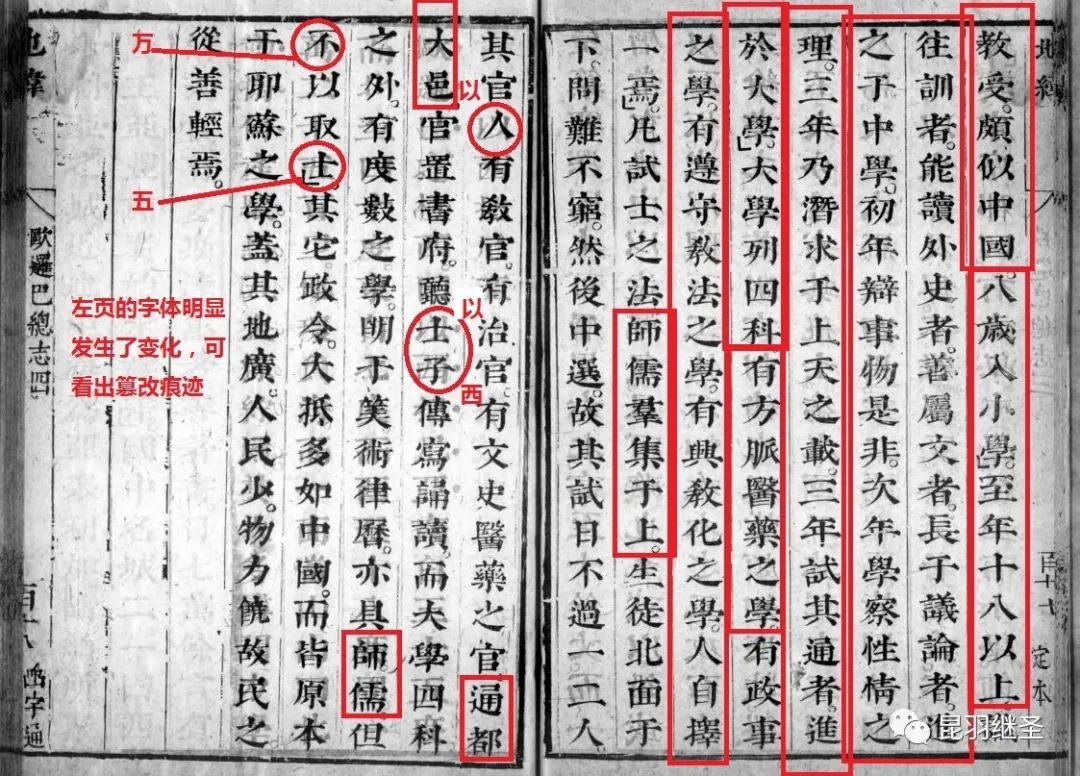 地緯
百十七
定本
教受。頗似中國。八歲入小學。至年十八以上。
往訓者。能讀外史者。善屬文者。長于議論者。進
之于中學。初年辯事物是非。次年學察性情之
理。三年乃潛求于上天之載。三年試其通者。進
於大學。大學列四科。有方脈醫藥之學。有政事
之學。有遵守敎法之學。有興敎化之學。人自擇
一焉。凡試士之法。師儒羣集于上。生徒北面于
下。問難不窮。然後中選。故其試日不過一二人。
其官人有敎官。有治官。有文史醫藥之官。通都
大邑官置書府。聽士子傳寫誦讀。而大學四科
之外。有度數之學。明于筭術律曆。亦具師儒。但
不以取士。其它政令。大抵多如中國。而皆原本
于耶蘇之學。蓋其地廣。人民少。物力饒。故民之
從善輕焉。
地緯
歐邏巴總志四
百十八
字通
以
以
西
万
五
左页的字体明显
发生了变化，可
看出篡改痕迹
昆羽继圣